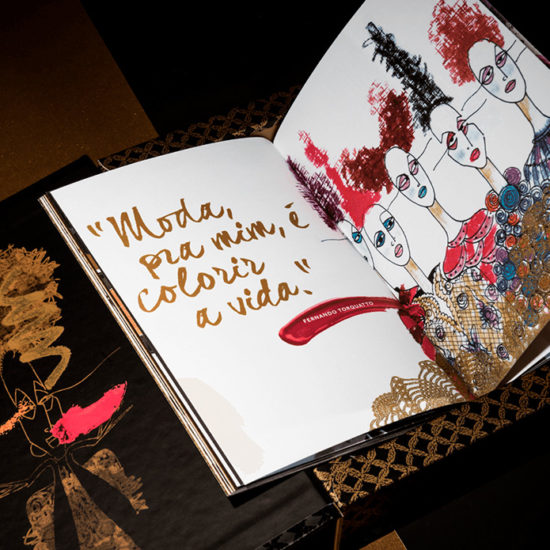 "Moda,
pra mim, é
colorir
a vida."
FERNANDO TORQUATTO